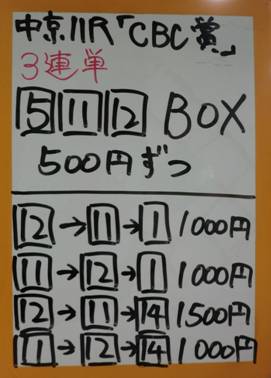 中京11R「CBC賞」
3連単
5 11 12 BOX
500円ずつ
12→11→1 1000円
11→12→1 1000円
12→11→14 1500円
11→12→14 1000円